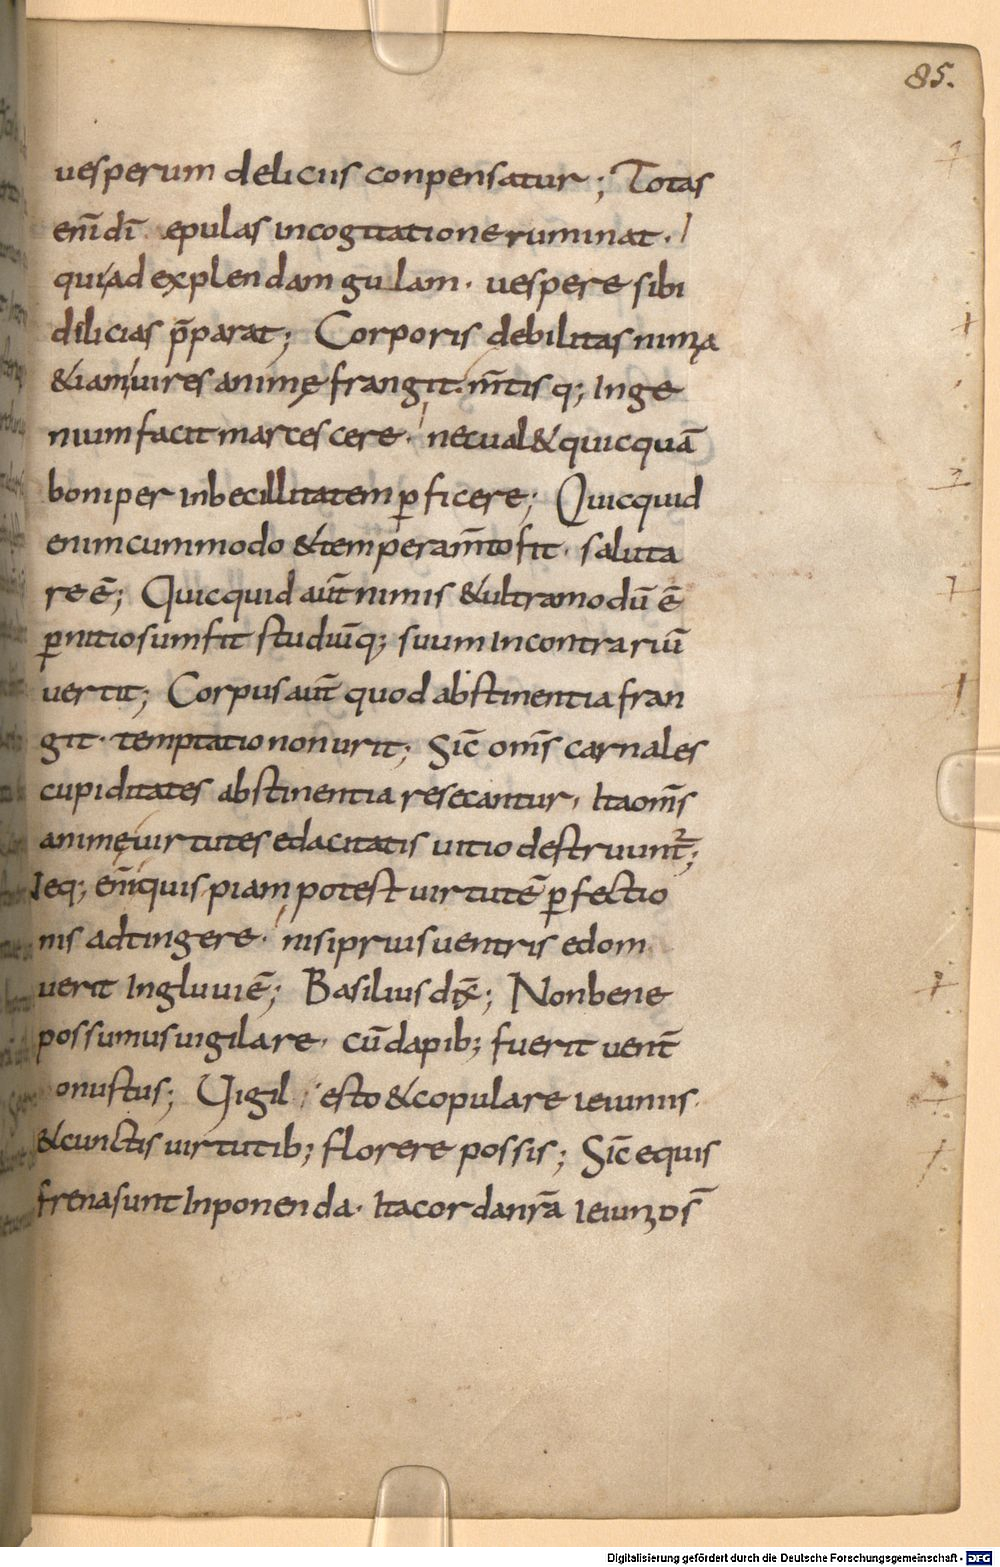 85.
uesperum deliciis conpensatur; Totas
enī dī epulas in cogitatione ruminat.
qui ad explendam gulam. uespere sibi
dilicias p̄parat; Corporis debilitas nimia
& iam uires animę frangit. m̄tisq; Inge
nium facit marcescere. nec ual& quicquā
boni per inbecillitatem ꝑficere; Quicquid
enim cum modo & temperam̄to fit. saluta
re ē; Quicquid aūt nimis & ultra modū ē
ꝑnitiosum fit studiūq; suum In contrariū
uertit; Corpus aūt quod abstinentia fran
git. temptatio non urit; Sic̄ om̄s carnales
cupiditates abstinentia resecantur, Ita om̄s
animę uirtutes edacitatis uitio destruunt᷑;
Neq; enī quispiam potest uirtutē ꝑfectio
nis adtingere. nisi prius uentris edom
uerit Ingluuiē; Basilius dix̄; Non bene
possumus uigilare. cū dapib; fuerit uent̄
onustus; Uigil esto & copulare ieiuniis.
& cunctis uirtutib; florere possis; Sic̄ equis
frena sunt Inponenda. Ita corda nr̄a ieiuniis